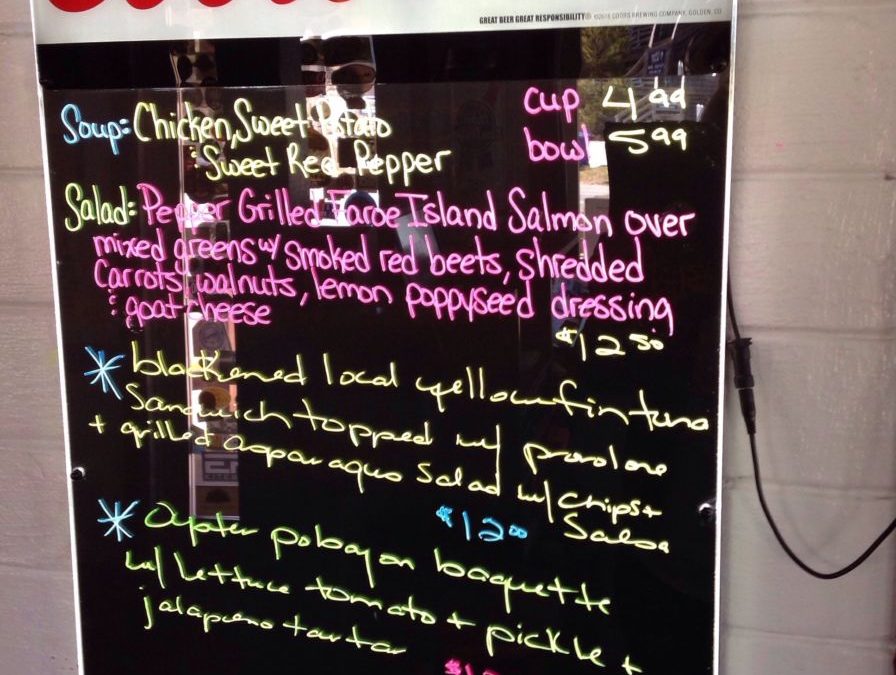 GREAT BEER GREAT RESPONSIBILITY® ©2014 COORS BREWING COMPANY, GOLDEN, CO
Soup: Chicken, Sweet Potato
& Sweet Red Pepper
cup 4 99
bowl 5 99
Salad: Pepper Grilled Faroe Island Salmon over
mixed greens w/ smoked red beets, shredded
Carrots, walnuts, lemon poppyseed dressing
& goat cheese
$12 50
* blackened local yellowfin tuna
Sandwich topped w/ provolone
+ grilled asparagus salad w/ chips +
Salsa
$12 00
* Oyster poboy on baguette
w/ lettuce tomato + pickle +
jalapeno tartar